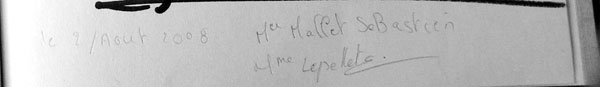 le 2/Août 2008 Mr Mallet Sebastien
Mme Lepellete